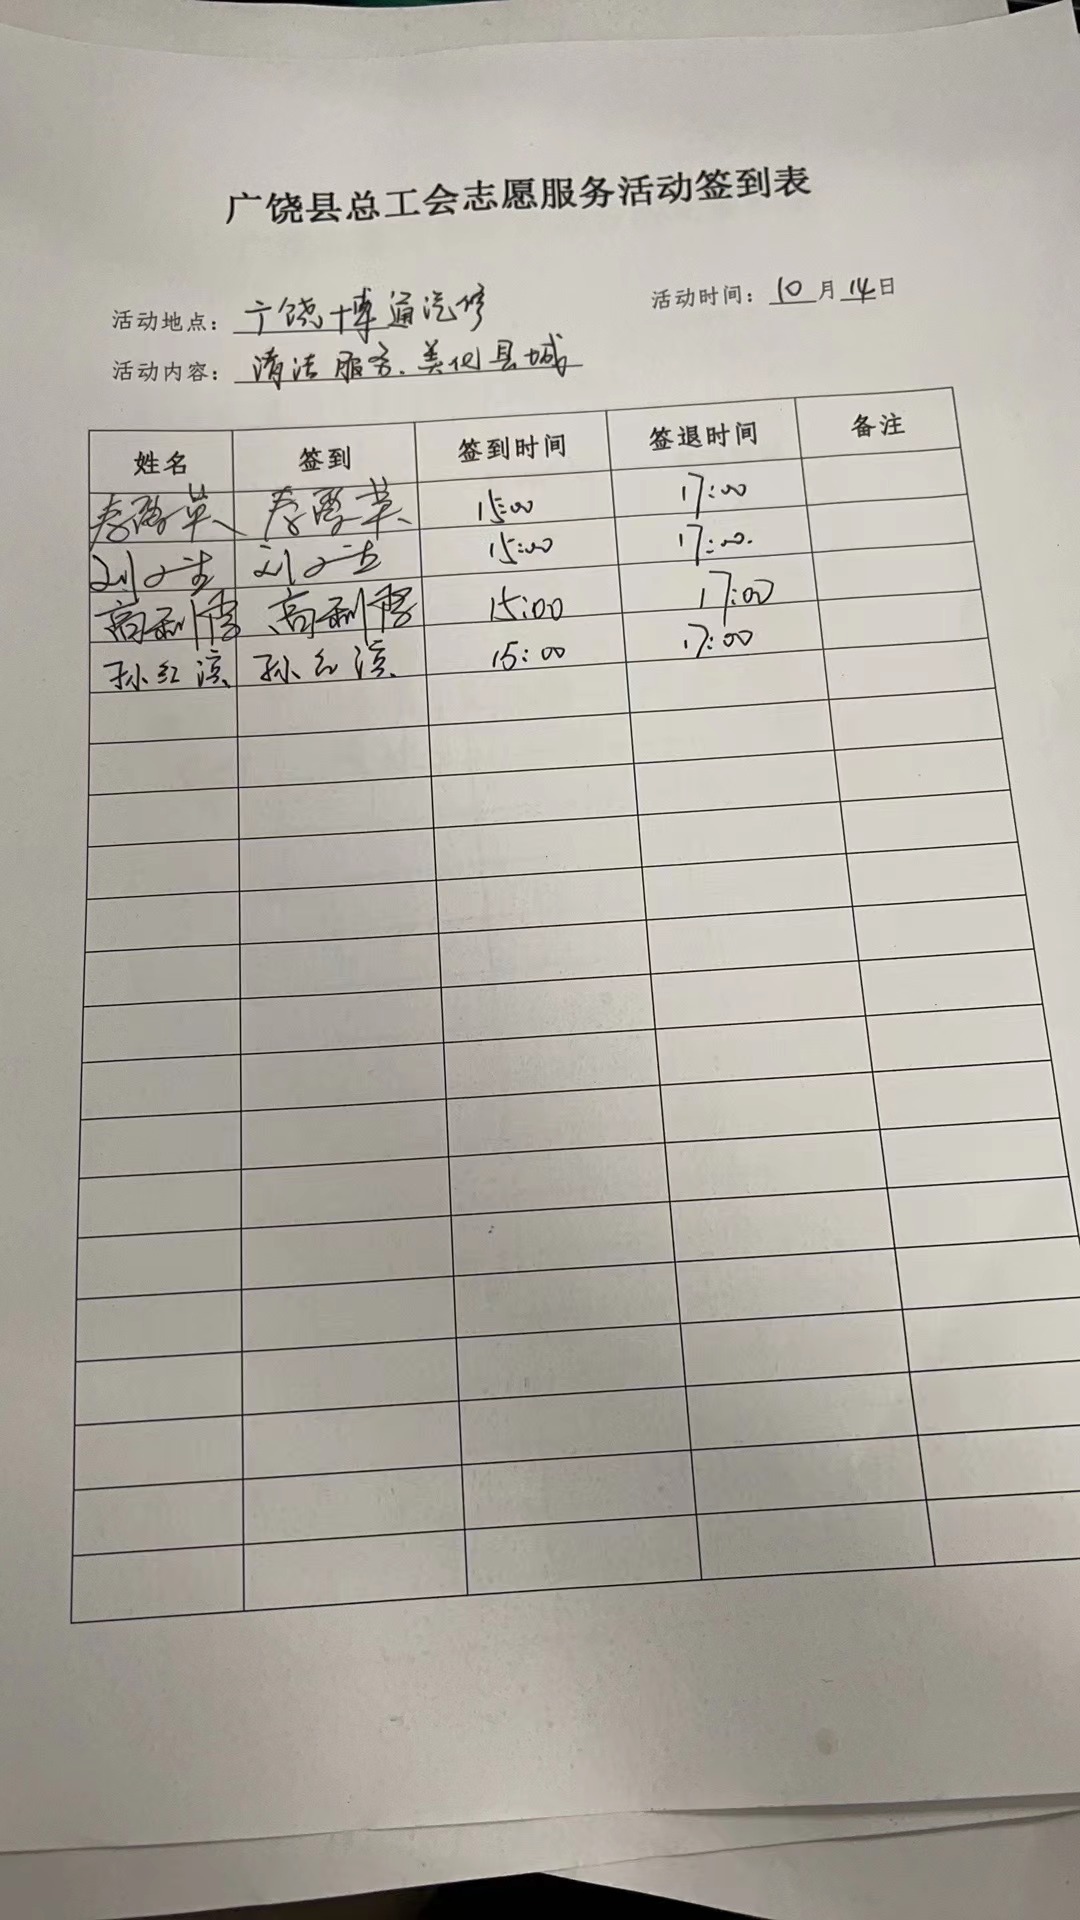 广饶县总工会志愿服务活动签到表
活动地点：广饶博通汽修 活动时间：10月14日
活动内容：清洁服务、美化县城
姓名 签到 签到时间 签退时间 备注
15:00 17:00
刘 刘 15:00 17:00.
高利 高利 15:00 17:00
孙红滨 孙红滨 15:00 17:00